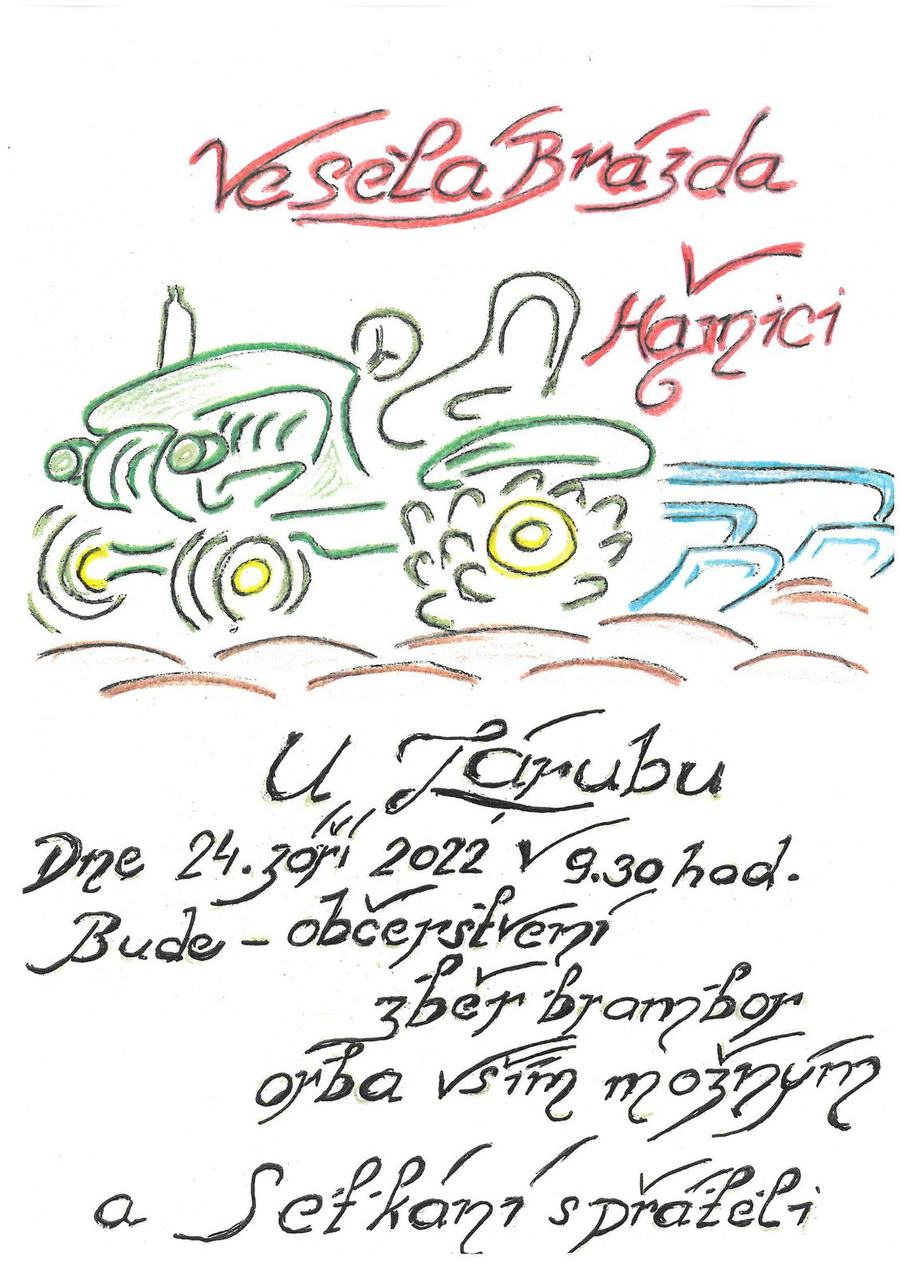 Veselá Brázda
v Hajnici
U Zárubu
Dne 24. září 2022 v 9.30 hod.
Bude - občerstvení
zběr brambor
orba vším možným
a Setkání s přáteli